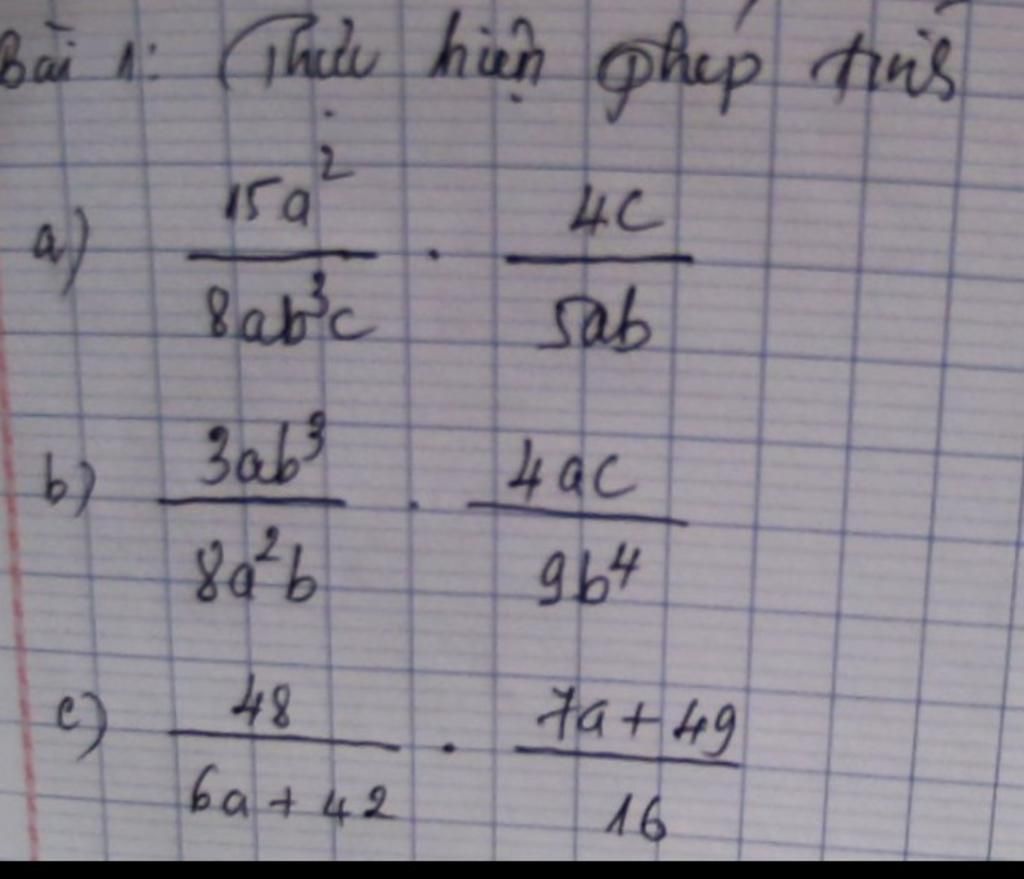 Bài 1: Thực hiện phép tính
a) 15a² / 8ab³c . 4c / 5ab
b) 3ab³ / 8a²b . 4ac / 9b⁴
c) 48 / 6a + 42 . 7a + 49 / 16